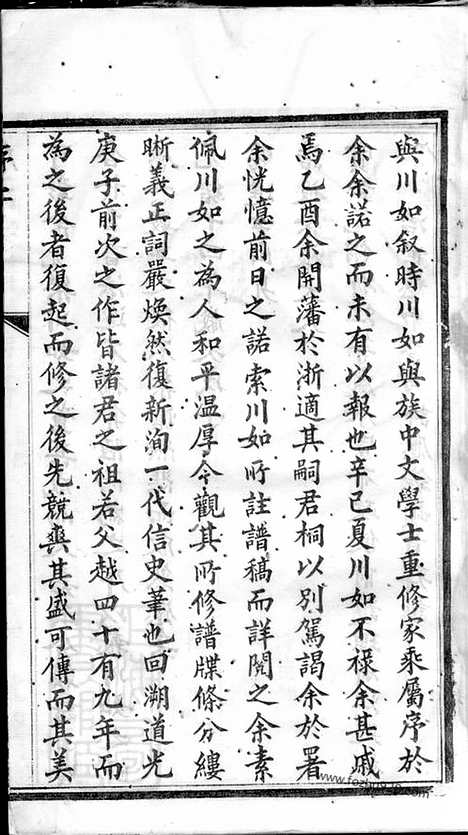 與川如叙時川如與族中文學士重修家乘屬序於
余余諾之而未有以報也辛巳夏川如不祿余甚戚
焉乙酉余開藩於浙適其嗣君桐以別駕謁余於署
余恍憶前日之諾索川如所註譜稿而詳閱之余素
佩川如之為人和平温厚今觀其所修譜牒條分縷
晰義正詞嚴煥然復新洵一代信史筆也回溯道光
庚子前次之作皆諸君之祖若父越四十有九年而
為之後者復起而修之後先競爽其盛可傳而其美